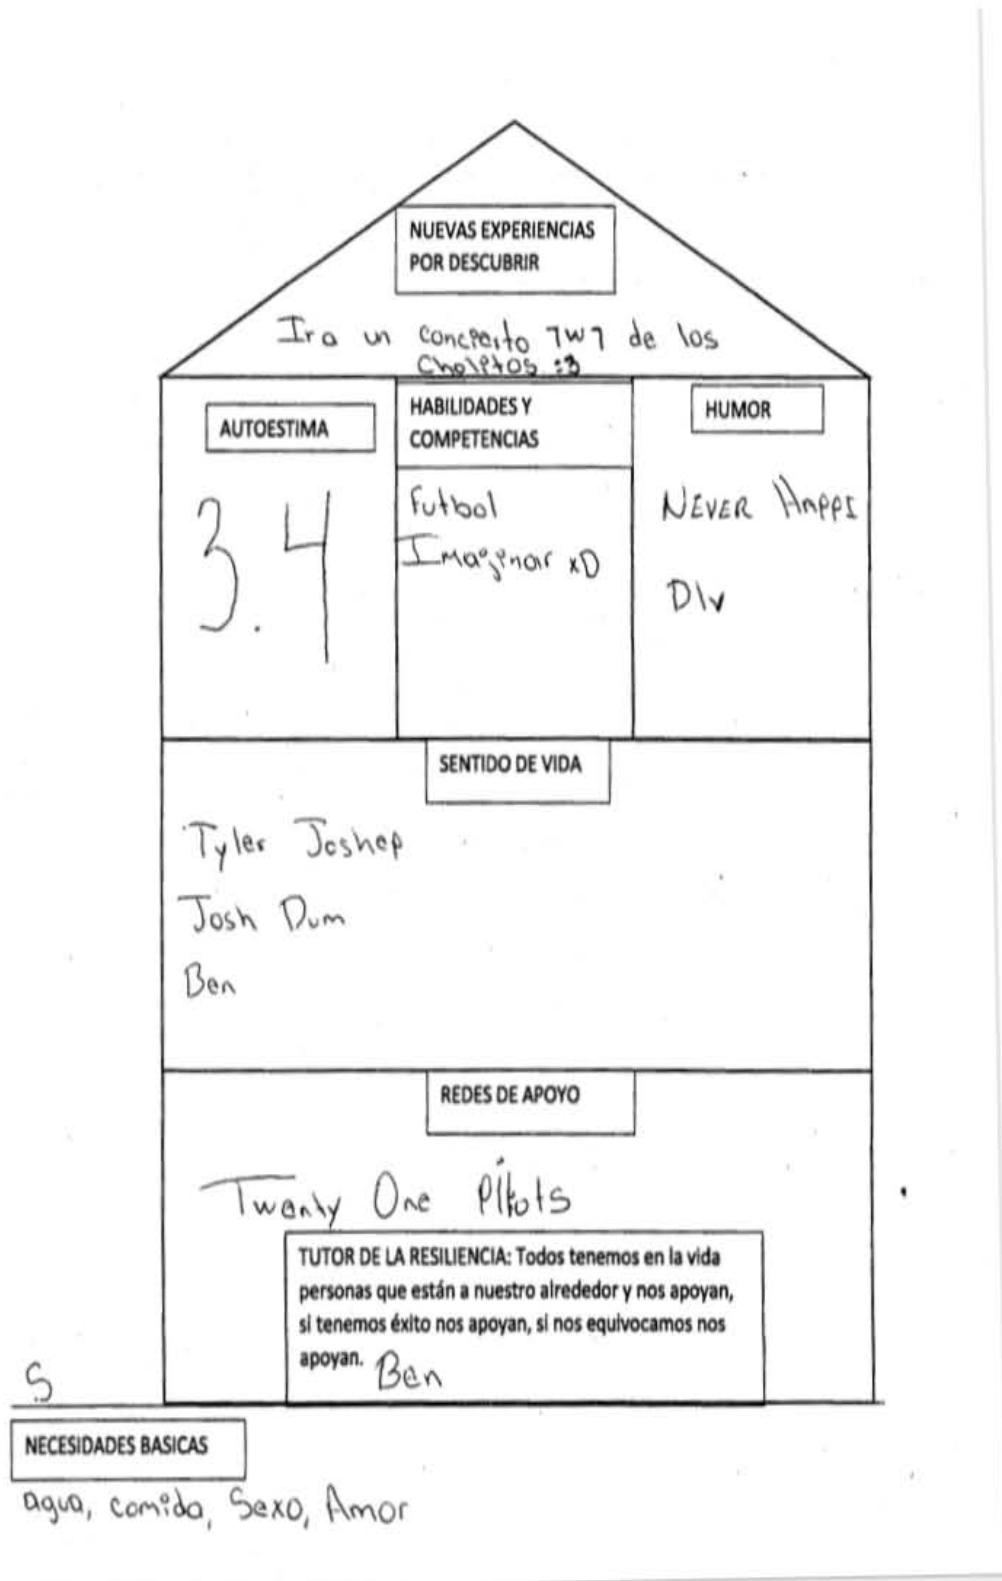 NUEVAS EXPERIENCIAS
POR DESCUBRIR
Ir a un concierto 7w7 de los
Cholitos :3
AUTOESTIMA
3.4
HABILIDADES Y
COMPETENCIAS
Futbol
Imaginar xD
HUMOR
NEVER HAPPI
Dlv
SENTIDO DE VIDA
Tyler Joshep
Josh Dum
Ben
REDES DE APOYO
Twenty One Pilots
TUTOR DE LA RESILIENCIA: Todos tenemos en la vida
personas que están a nuestro alrededor y nos apoyan,
si tenemos éxito nos apoyan, si nos equivocamos nos
apoyan. Ben
S
NECESIDADES BASICAS
agua, comida, Sexo, Amor